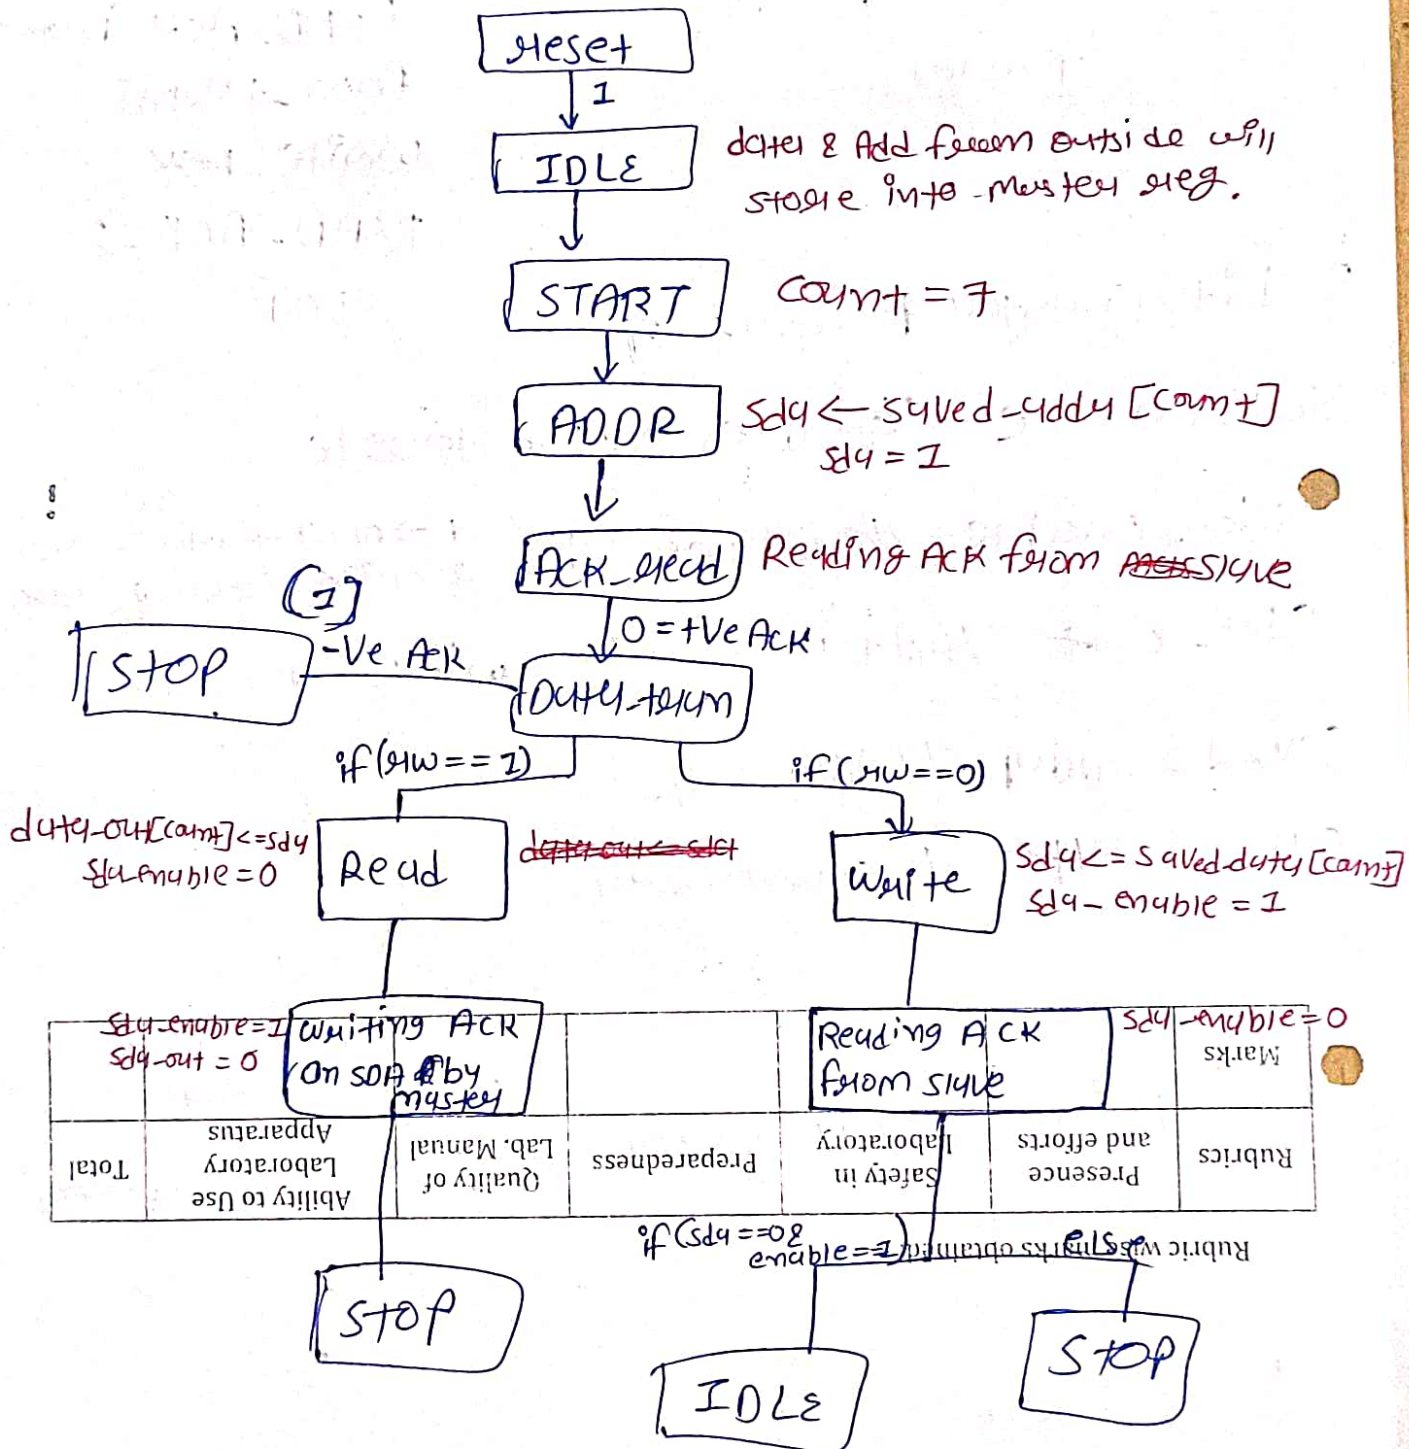 reset
1
IDLE
data & Add from outside will
store into master reg.
START
count = 7
ADDR
sda ← saved_addr [count]
sda = 1
ACK_read
Reading ACK from slave
(1)
0 = +ve ACK
STOP
-ve ACK
Data_tran
if (rw == 1)
if (rw == 0)
data_out[count] <= sda
sda enable = 0
Read
data out <= sda
Write
sda <= saved data [count]
sda_enable = 1
sda_enable = 1
sda_out = 0
Writing ACK
on SDA by
master
Reading ACK
from slave
sda_enable = 0
Marks
Rubrics
Presence
and efforts
Safety in
Laboratory
Preparedness
Quality of
Lab. Manual
Ability to Use
Laboratory
Apparatus
Total
Rubric wise marks obtained
if (sda == 0 &
enable == 1)
else
STOP
IDLE
STOP